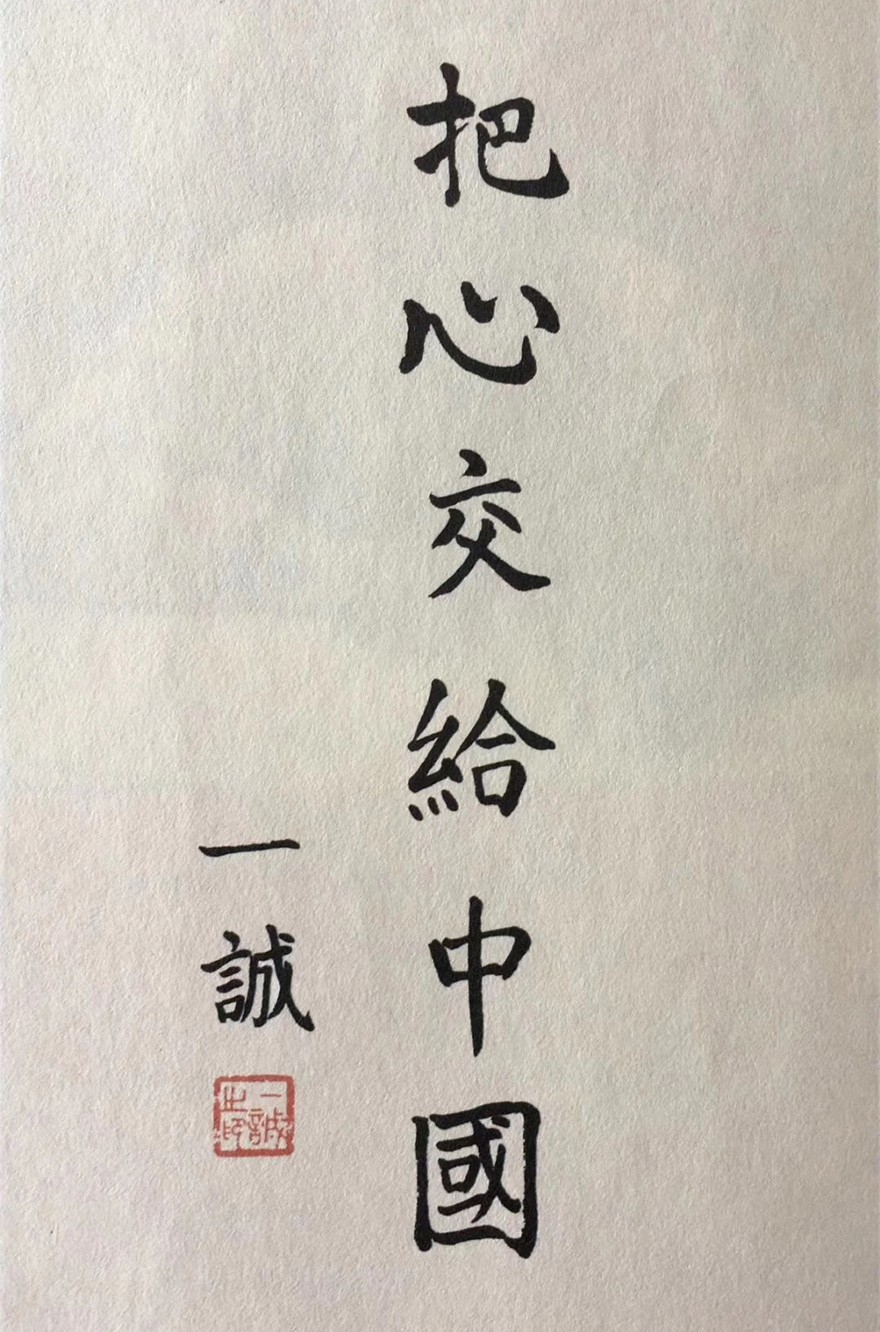 把心交給中國
一誠
一誠之印